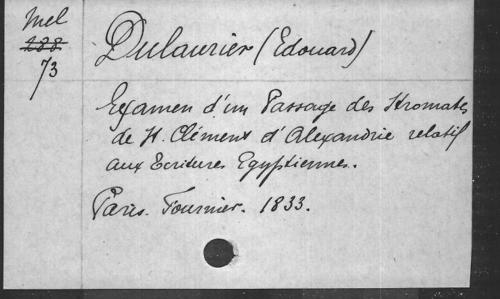 Mel
288
73
Dulaurier (Edouard)
Examen d'un Passage des Stromates
de St. Clément d'Alexandrie relatif
aux Ecritures Egyptiennes.
Paris. Fournier. 1833.